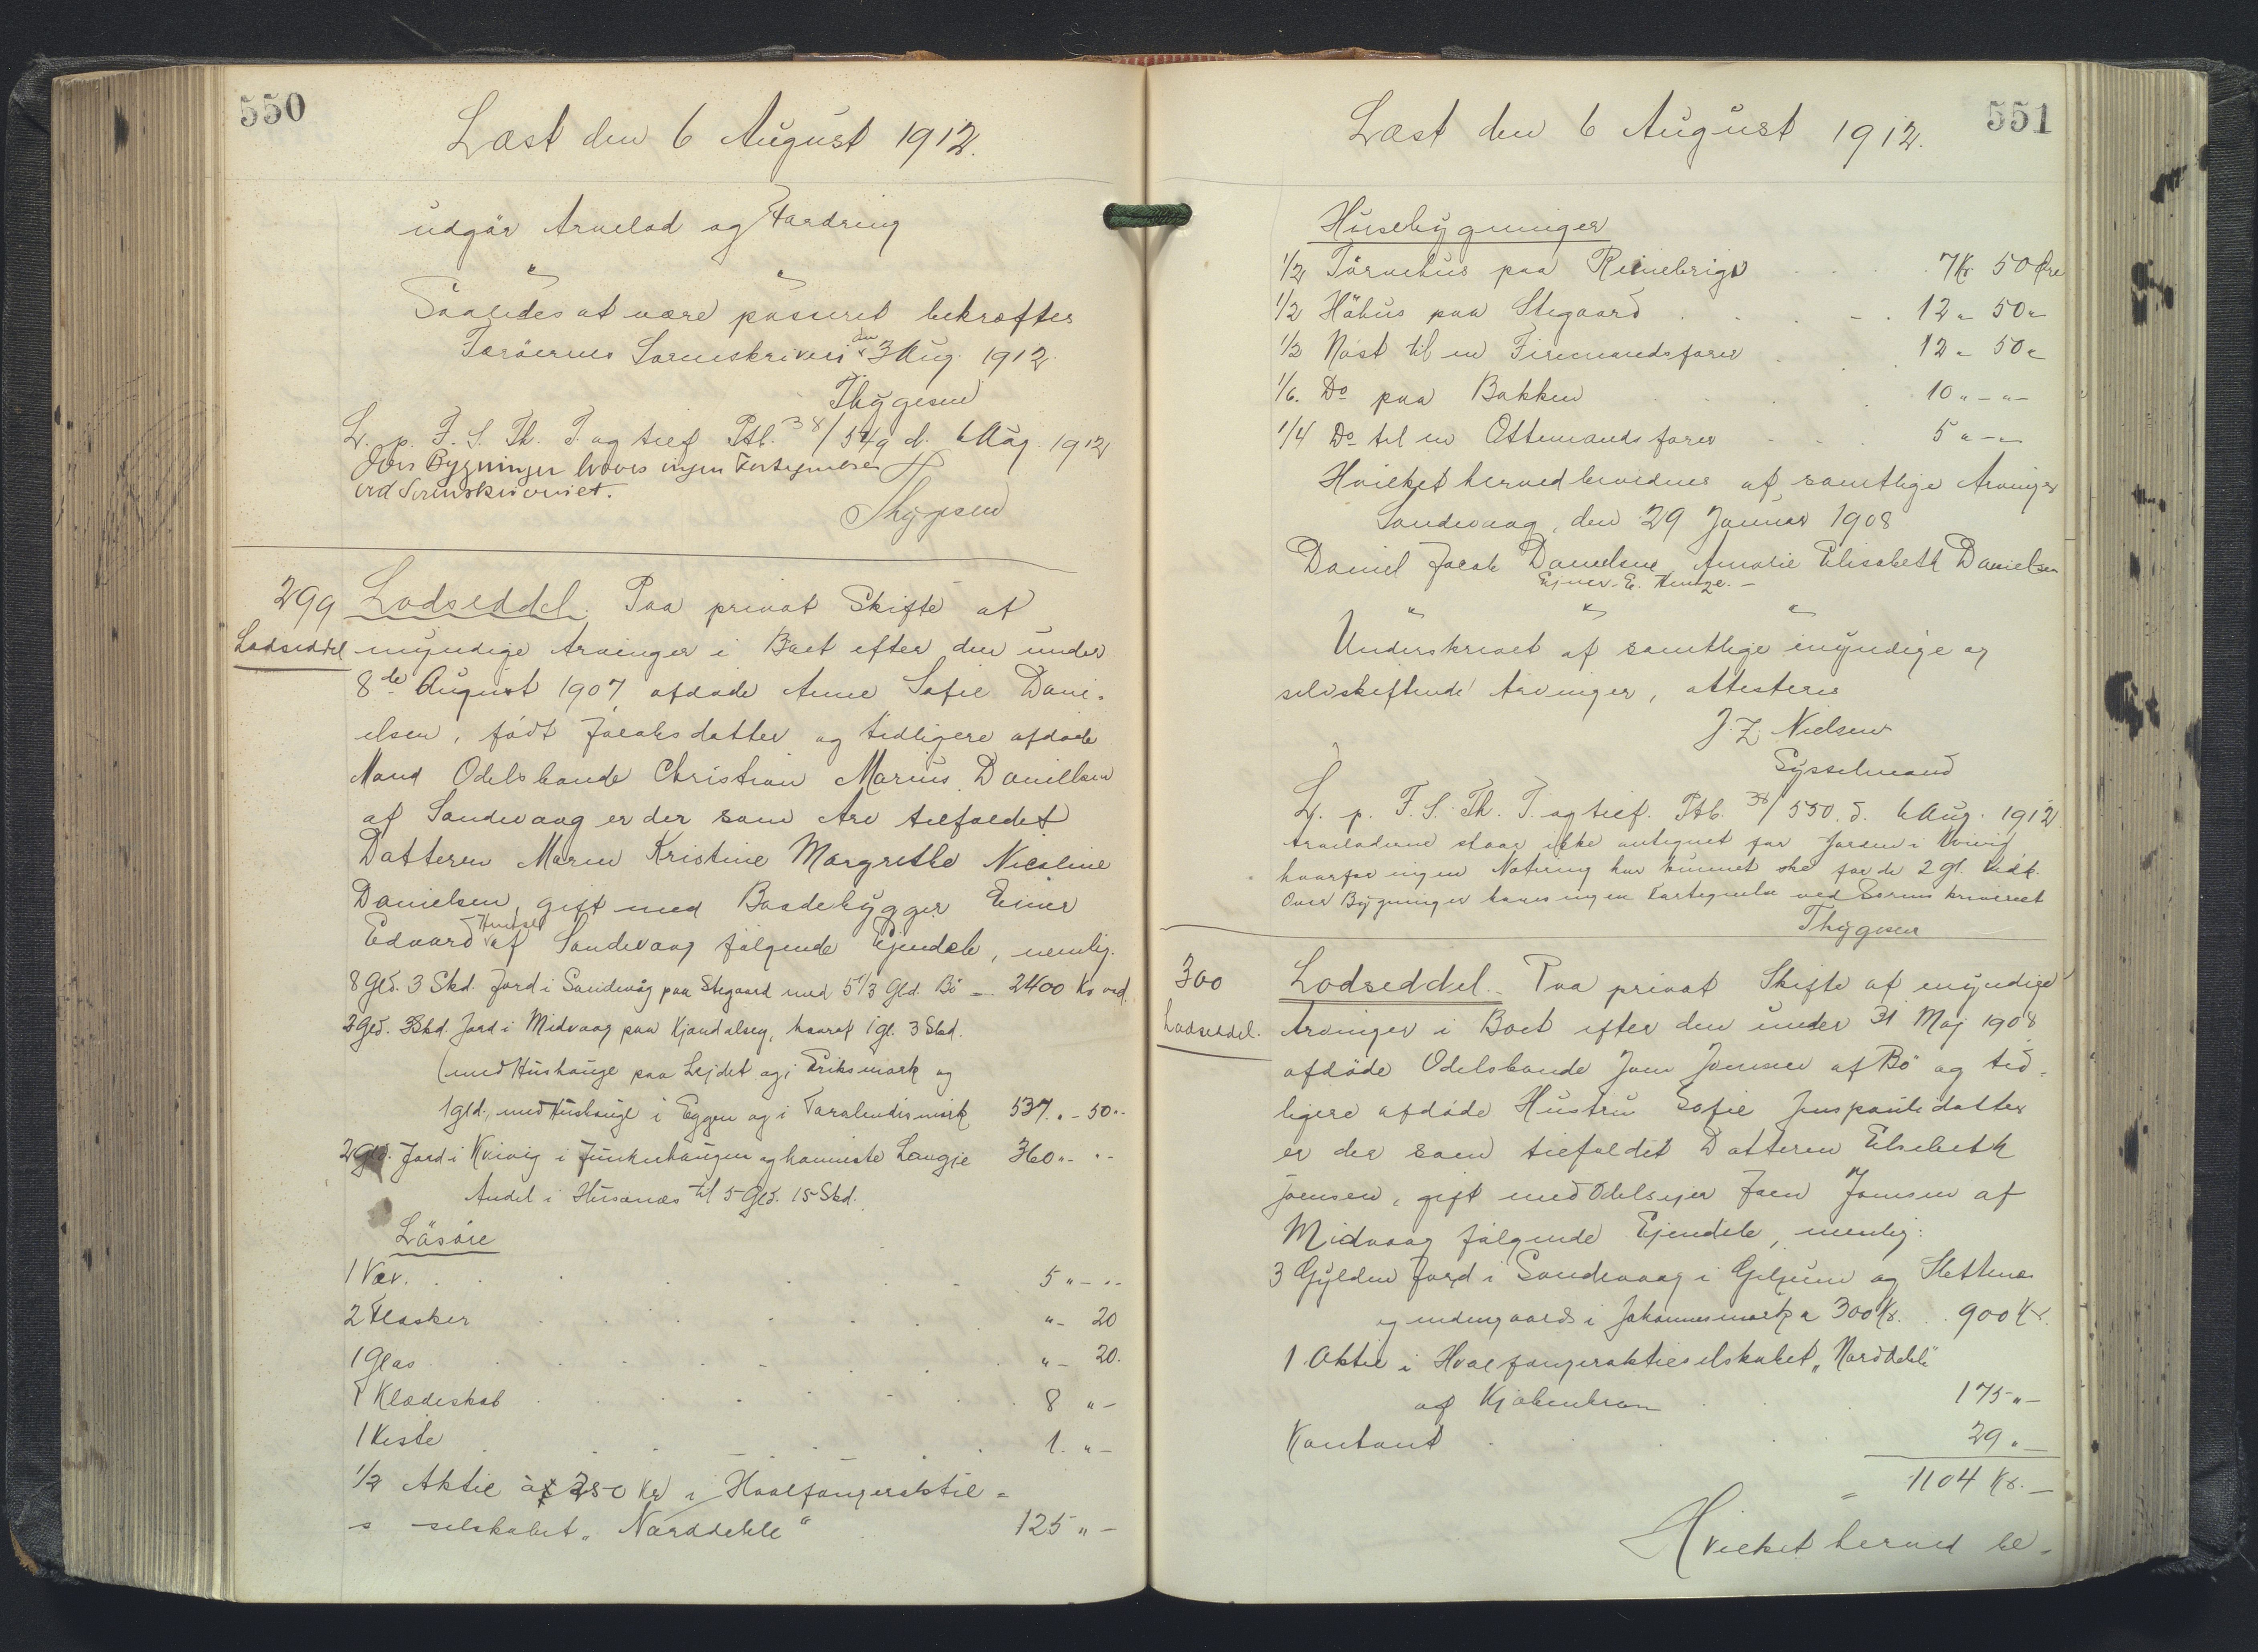 550
Læst den 6 August 1912.
udgår Arvelod og Fordring
" "
Saaledes at være passeret bekræftes
Færöernes Sorenskriveri den 3 Aug. 1912.
Thygesen
L. p. F. S. Th. T. og tilf. Ptb. 38/549 d. 6 Aug. 1912
Over Bygninger haves ingen Fortegnelse
ved Sorenskriveriet.
Thygesen
299 Lodseddel. Paa privat Skifte af
Lodseddel myndige Arvinger i Boet efter den under
8de August 1907 afdöde Anne Sofie Dani-
elsen, född Jacobsdatter og tidligere afdöde
Mand Odelsbonde Christian Marius Daniellsen
af Sandevaag er der som Arv tilfaldet
Datteren Maren Kristine Margrethe Nicoline
Danielsen, gift med Baadebygger Einer
Edvard Hentze af Sandevaag fölgende Ejendele, nemlig.
8 Gld. 3 Skd. Jord i Sandevåg paa Stegaard med 5 1/3 Gld. Bö = 2400 Kr ved.
2 Gld. 3 Skd. Jord i Midvaag paa Kjandalseg, hvoraf 1 gl. 3 Skd.
(med Hushauge paa Lejdet og i Eriksmark og
1 gld. med Hushauge i Eggen og i Taralendismark 537 " - 50 "
2 Gld. Jord i Kvivig i Junkerhaugen og hanneste Langje 360 " - "
Andel i Husanæs til 5 Gld. 15 Skd.
Lösöre
1 Væv. 5 " - "
2 Flasker " - 20
1 Glas " - 20.
1 Klædeskab 8 " -
1 Kiste 1. " -
1/2 Aktie à 250 Kr i Hvalfangeraktie =
s selskabet "Norddeble" 125 " -
551
Læst den 6 August 1912.
Husebygninger
1/2 Törvehus paa Reinebrigv 7 Kr 50 Öre
1/2 Höhus paa Stegaard 12 " 50 "
1/2 Nöst til en Firemandsfarer 12 " 50 "
1/6. Do paa Bakken 10 " - " -
1/4 Do til en Ottemandsfarer 5 " - " -
Hvilket herved bevidnes af samtlige Arvinger
Sandevaag, den 29 Januar 1908
Daniel Jacob Danielsen Amalie Elisabeth Danielsen
Ejner. E. Hentze. -
" " "
Underskrevet af samtlige myndige og
selvskiftende Arvinger, attesteres
J. Z. Nielsen
Sysselmand
L. p. F. S. Th. T. og tilf. Ptb. 38/550. d. 6 Aug. 1912.
Arveladerne staar ikke antegnet for Jorden i Kvivig
hvorfor ingen Notering har kunnet ske for de 2 gl. Vedk.
Over Bygninger haves ingen Fortegnelse ved Sorenskriveriet
Thygesen
300 Lodseddel. Paa privat Skifte af myndige
Lodseddel. Arvinger i Boet efter den under 31 Maj 1908
afdöde Odelsbonde Joen Joensen af Bö og tid-
ligere afdöde Hustru Sofie Jenspaulidatter
er der som tilfaldet Datteren Elsebeth
Joensen, gift med Odelsejer Joen Joensen af
Midvaag fölgende Ejendele, nemlig:
3 Gylden Jord i Sandevaag i Geljum og Slettenæs
og indengaards i Johannesmark a 300 Kr. 900 Kr.
1 Aktie i Hvalfangeraktieselskabet "Norddeble"
af Kjöbenhavn 175 " -
Kontant 29 " -
= 1104 Kr. -
Hvilket herved be-